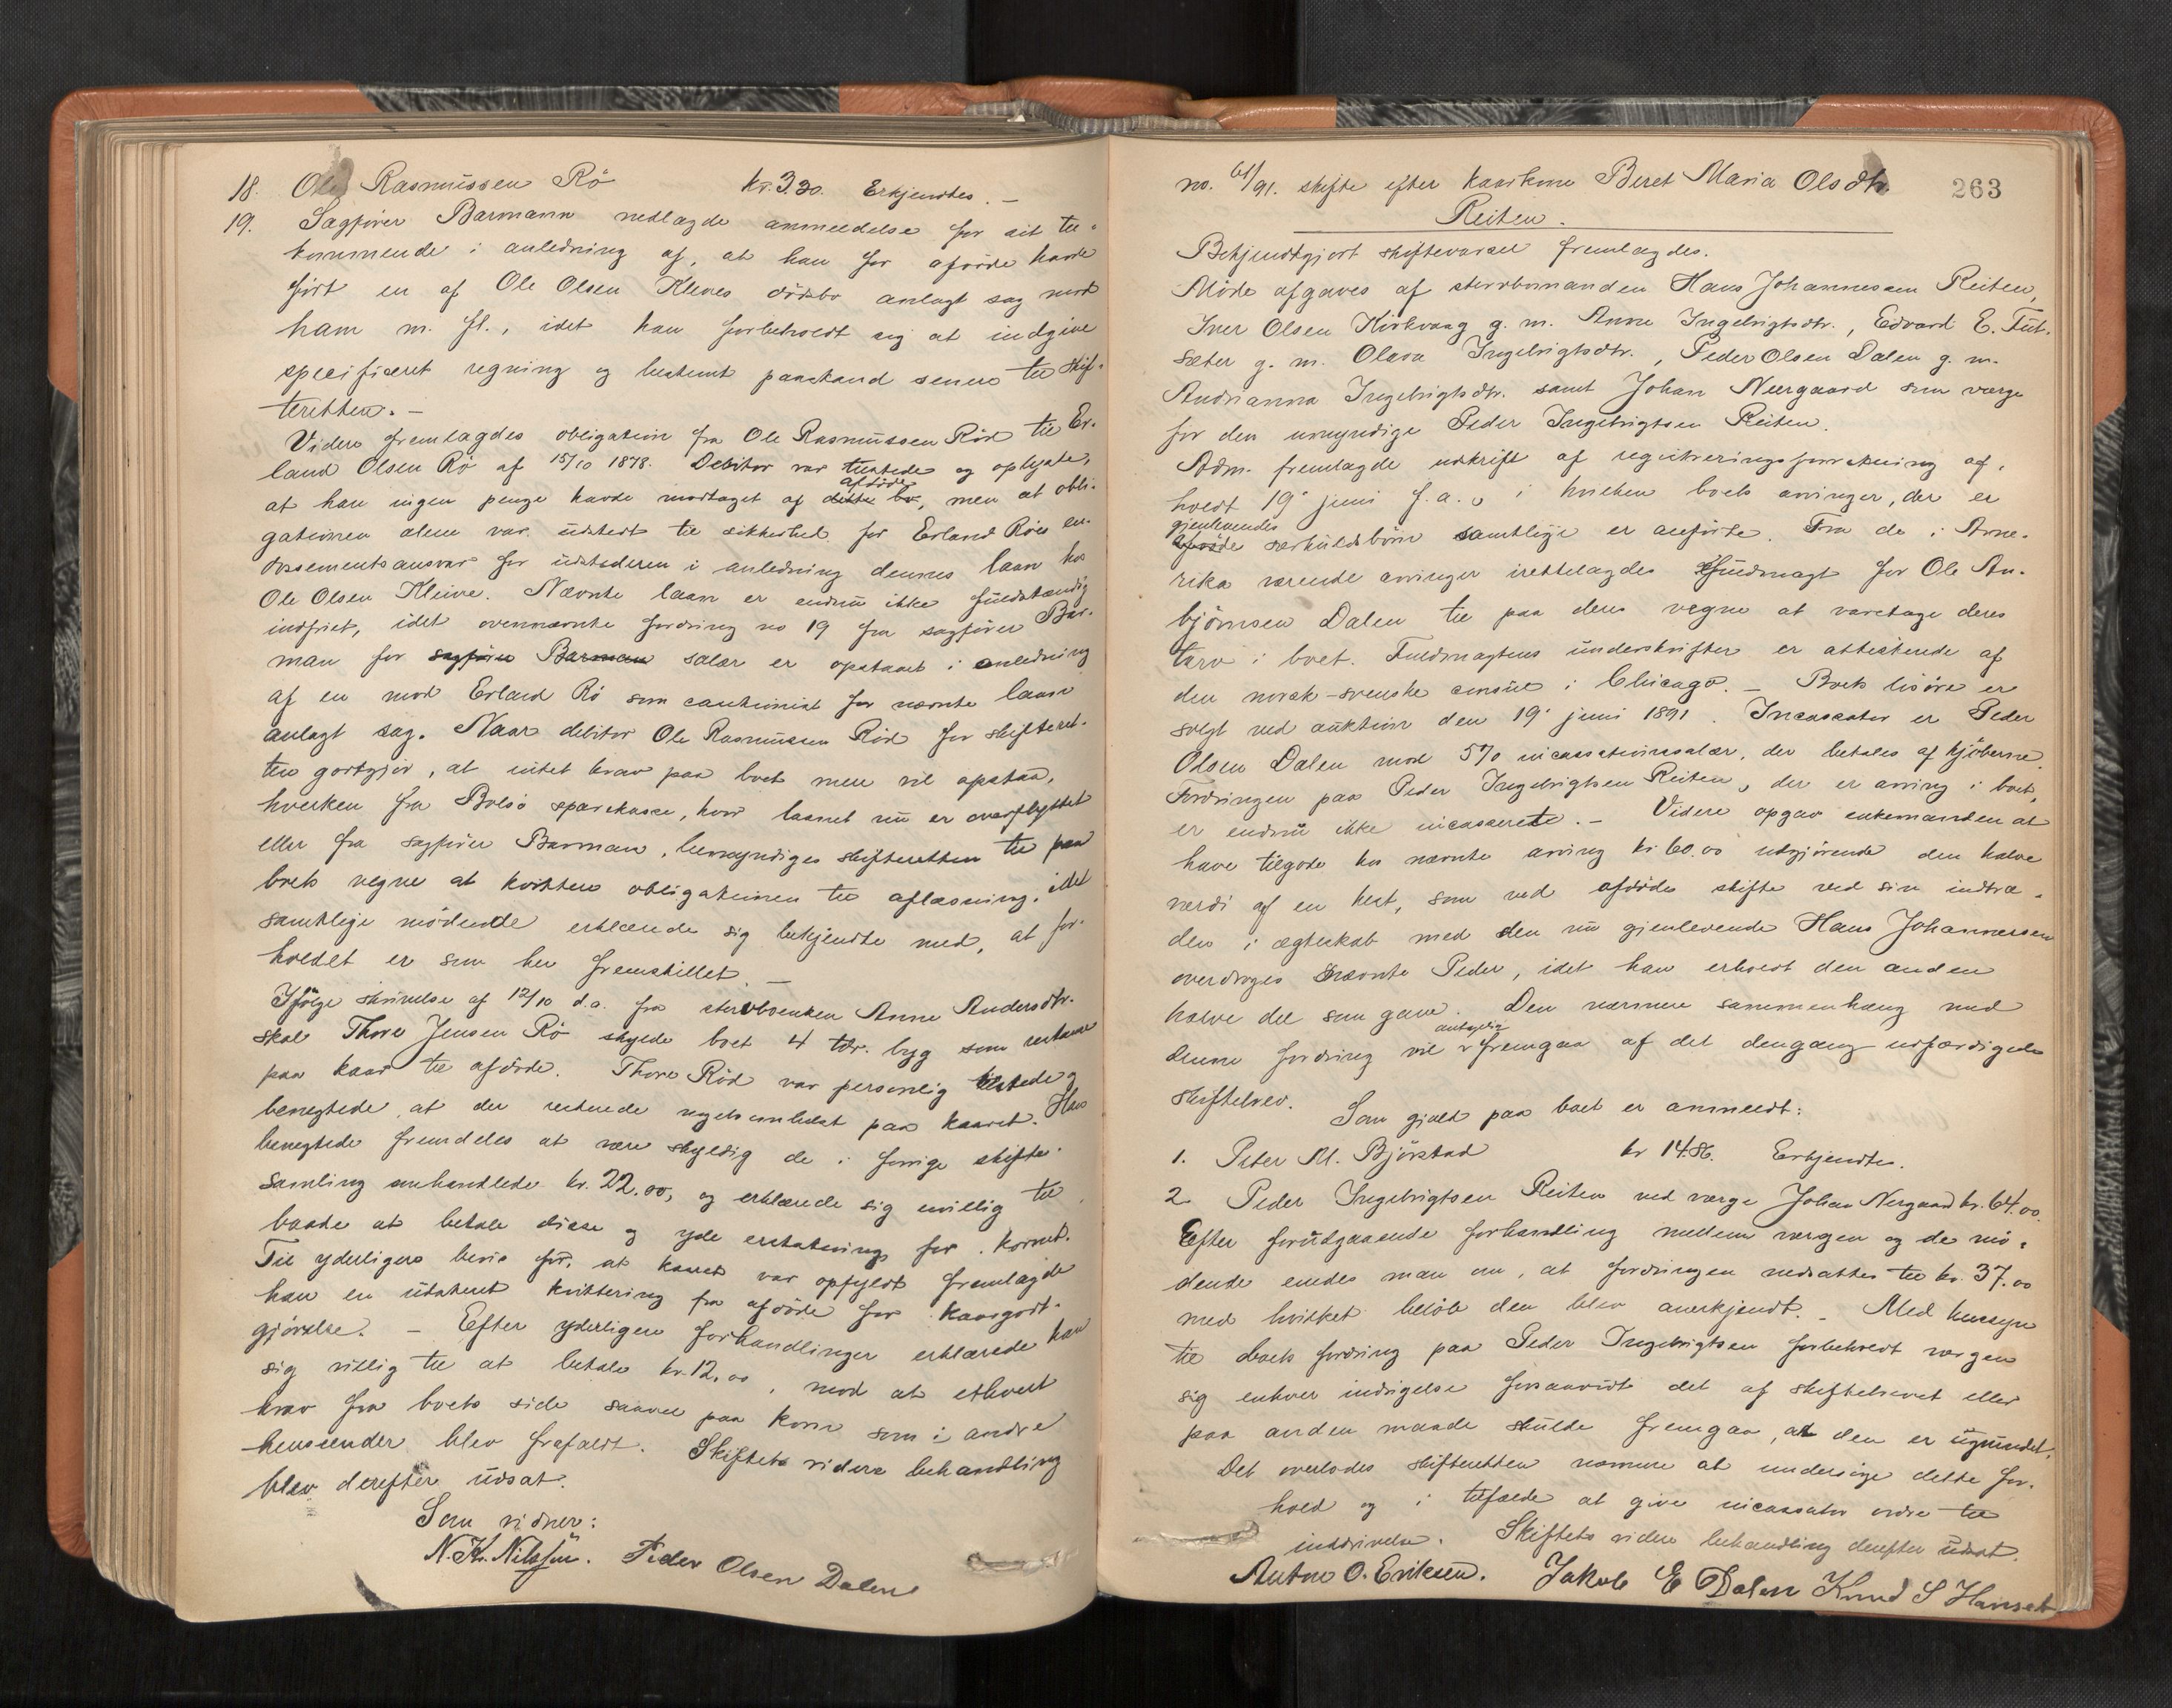 18. Ole Rasmussen Rö kr. 3.20. Erkjendtes. –
19. Sagfører Barmann nedlagde anmeldelse for sit til-
kommende i anledning af, at han for afdöde havde
fört en af Ole Olsen Kleves dödsbo anlagt sag mod
ham m. fl., idet han forbeholdt sig at indgive
specificeret regning og bestemt paastand senere til skif-
teretten. –
Videre fremlagdes obligation fra Ole Rasmussen Röd til Er-
land Olsen Rö af 15/10 1878. Debitor var tilstede og oplyste,
at han ingen penge havde modtaget af dette bo afdöde, men at obli-
gationen alene var udstedt til sikkerhed for Erland Röes en-
dossementsansvar for udstederen i anledning dennes laan hos
Ole Olsen Kleive. Nævnte laan er endnu ikke fuldstændig
indfriet, idet ovennævnte fordring no 19 fra sagförer Bar-
man for sagförer Barman salær er opstaaet i anledning
af en mod Erland Rö som cautionist for nævnte laan
anlagt sag. Naar debitor Ole Rasmussen Röd for skifteret-
ten godtgjör, at intet krav paa boet mere vil opstaa,
hverken fra Bolsö sparekasse, hvor laanet nu er overflyttet
eller fra sagförer Barman, bemyndiges skifteretten til paa
boets vegne at kvittere obligationen til aflæsning, idet
samtlige mödende erklærede sig bekjendte med, at for-
holdet er som her fremstillet. –
Ifölge skrivelse af 12/10 d.a. fra sterboenken Anne Andersdtr.
skal Thore Jensen Rö skylde boet 4 tdr. byg som restance
paa kaar til afdöde. Thore Röd var personlig tilstede og
benegtede, at der restende nogetsomhelst paa kaaret. Han
benegtede fremdeles at være skyldig de i forrige skifte-
samling omhandlede kr. 22.00, og erklærede sig uvillig til
baade at betale disse og yde erstatning for kornet.
Til yderligere bevis for, at kaaret var opfyldt fremlagde
han en udateret kvittering fra afdöde for kaargodt-
gjörelse. – Efter yderligere forhandlinger erklærede han
sig villig til at betale kr. 12.00, mod at ethvert
krav fra boets side saavel paa korn som i andre
henseender blev frafaldt. Skiftets videre behandling
blev derefter udsat.
Som vidner:
N. Kr. Nilssen. Peder Olsen Dalen
263
no. 61/91. skifte efter kaarkone Beret Maria Olsdtr.
Reiten.
Bekjendtgjort skiftevarsel fremlagdes.
Möde afgaves af sterbomanden Hans Johannessen Reiten,
Iver Olsen Kirkvaag g. m. Anne Ingebrigtsdtr., Edvard E. Fut-
sæter g. m. Olava Ingebrigtsdtr., Peder Olsen Dalen g. m.
Andrianna Ingebrigtsdtr. samt Johan Neergaard som værge
for den umyndige Peder Ingebrigtsen Reiten.
Adm. fremlagde udskrift af registreringsforretning af-
holdt 19' juni f.a., i hvilken boets arvinger, der er
afdöde gjenlevendes særkuldsbörn samtlige er anförte. Fra de i Ame-
rika værende arvinger irettelagdes fuldmagt for Ole An-
björnsen Dalen til paa deres vegne at varetage deres
tarv i boet. Fuldmagtens underskrifter er attesterede af
den norsk-svenske consul i Chicago. – Boets lösöre er
solgt ved auktion den 19' juni 1891. Incassator er Peder
Olsen Dalen mod 5% incassationssalær, der betales af kjöberne.
Fordringen paa Peder Ingebrigtsen Reiten, der er arving i boet,
er endnu ikke incasserede. – Videre opgav enkemanden at
have tilgode hos nævnte arving kr 60.00 udgjörende den halve
værdi af en hest, som ved afdödes skifte ved sin indtræ-
den i ægteskab med den nu gjenlevende Hans Johannessen
overdroges nævnte Peder, idet han erholdt den anden
halve del som gave. Den nærmere sammenhæng med
denne fordring vil antagelig fremgaa af det dengang udfærdigede
skiftebrev. Som gjæld paa boet er anmeldt:
1. Peter M. Björstad kr 14.86. Erkjendtes.
2. Peder Ingebrigtsen Reiten ved værge Johan Nergaard kr. 64.00.
Efter forudgaaende forhandling mellem værgen og de mö-
dende enedes man om, at fordringen nedsattes til kr. 37.00
med hvilket belöb den blev anerkjendt. – Med hensyn
til boets fordring paa Peder Ingebrigtsen forbeholdt værgen
sig enhver indsigelse forsaavidt det af skiftebrevet eller
paa anden maade skulde fremgaa, at den er ugrundet.
Det overlodes skifteretten nærmere at undersöge dette for-
hold og i tilfælde at give incassator ordre til
inddrivelse. Skiftets videre behandling derefter udsat.
Anton O. Eriksen. Jakob E Dalen Knud S Hanset